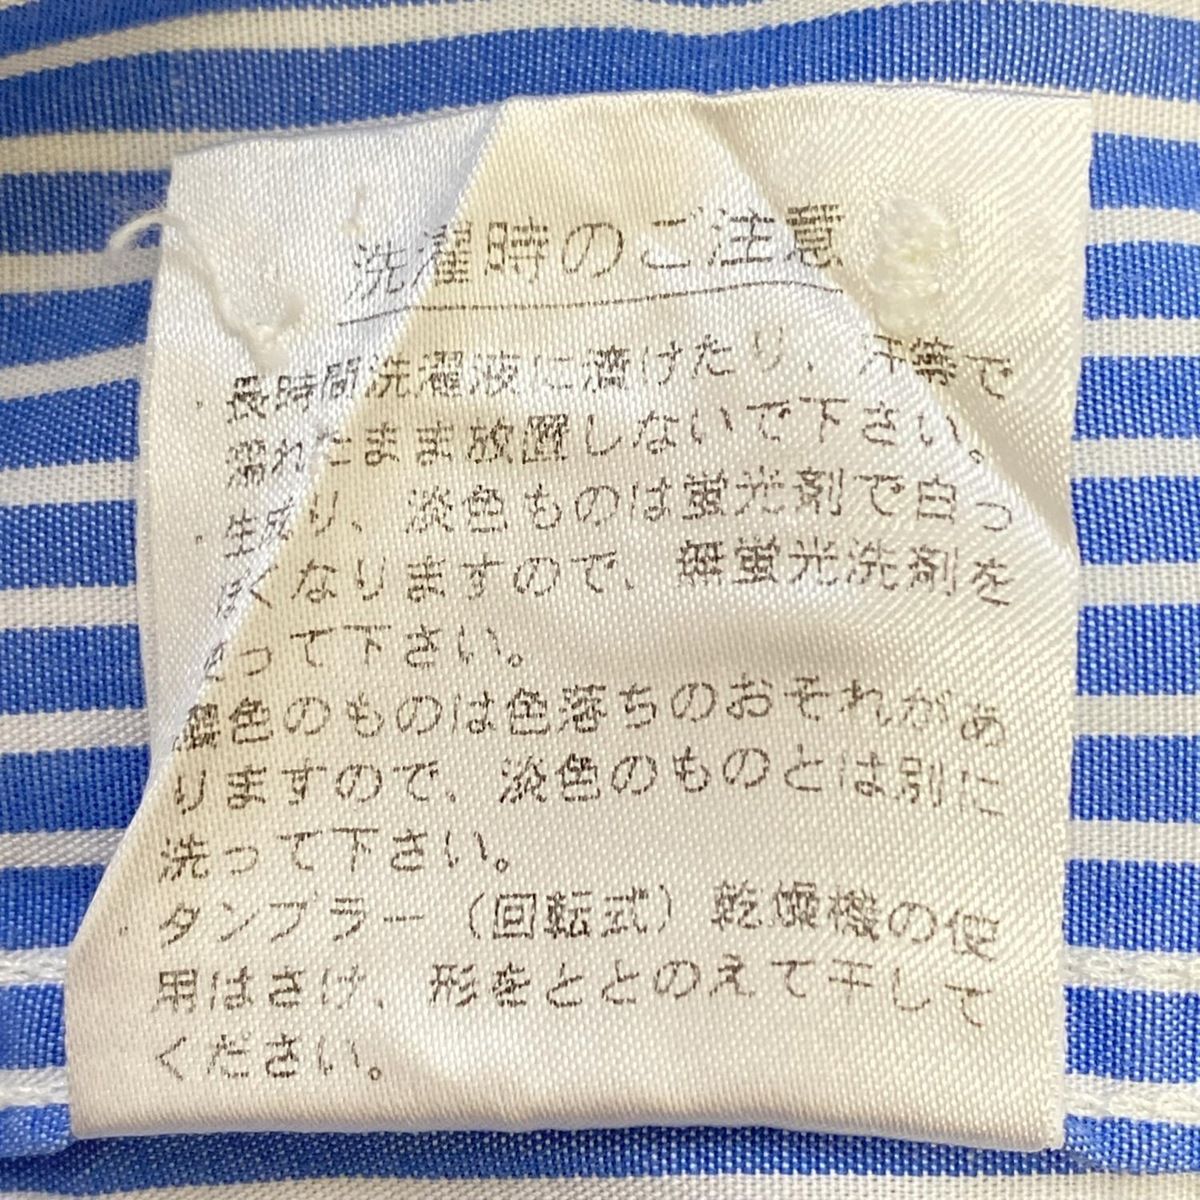 洗濯時のご注意
・長時間洗濯液に漬けたり、汗等で
濡れたまま放置しないで下さい。
・生成り、淡色ものは蛍光剤で白っ
ぽくなりますので、無蛍光洗剤を
使って下さい。
濃色のものは色落ちのおそれがあ
りますので、淡色のものとは別に
洗って下さい。
・タンブラー（回転式）乾燥機の使
用はさけ、形をととのえて干して
ください。